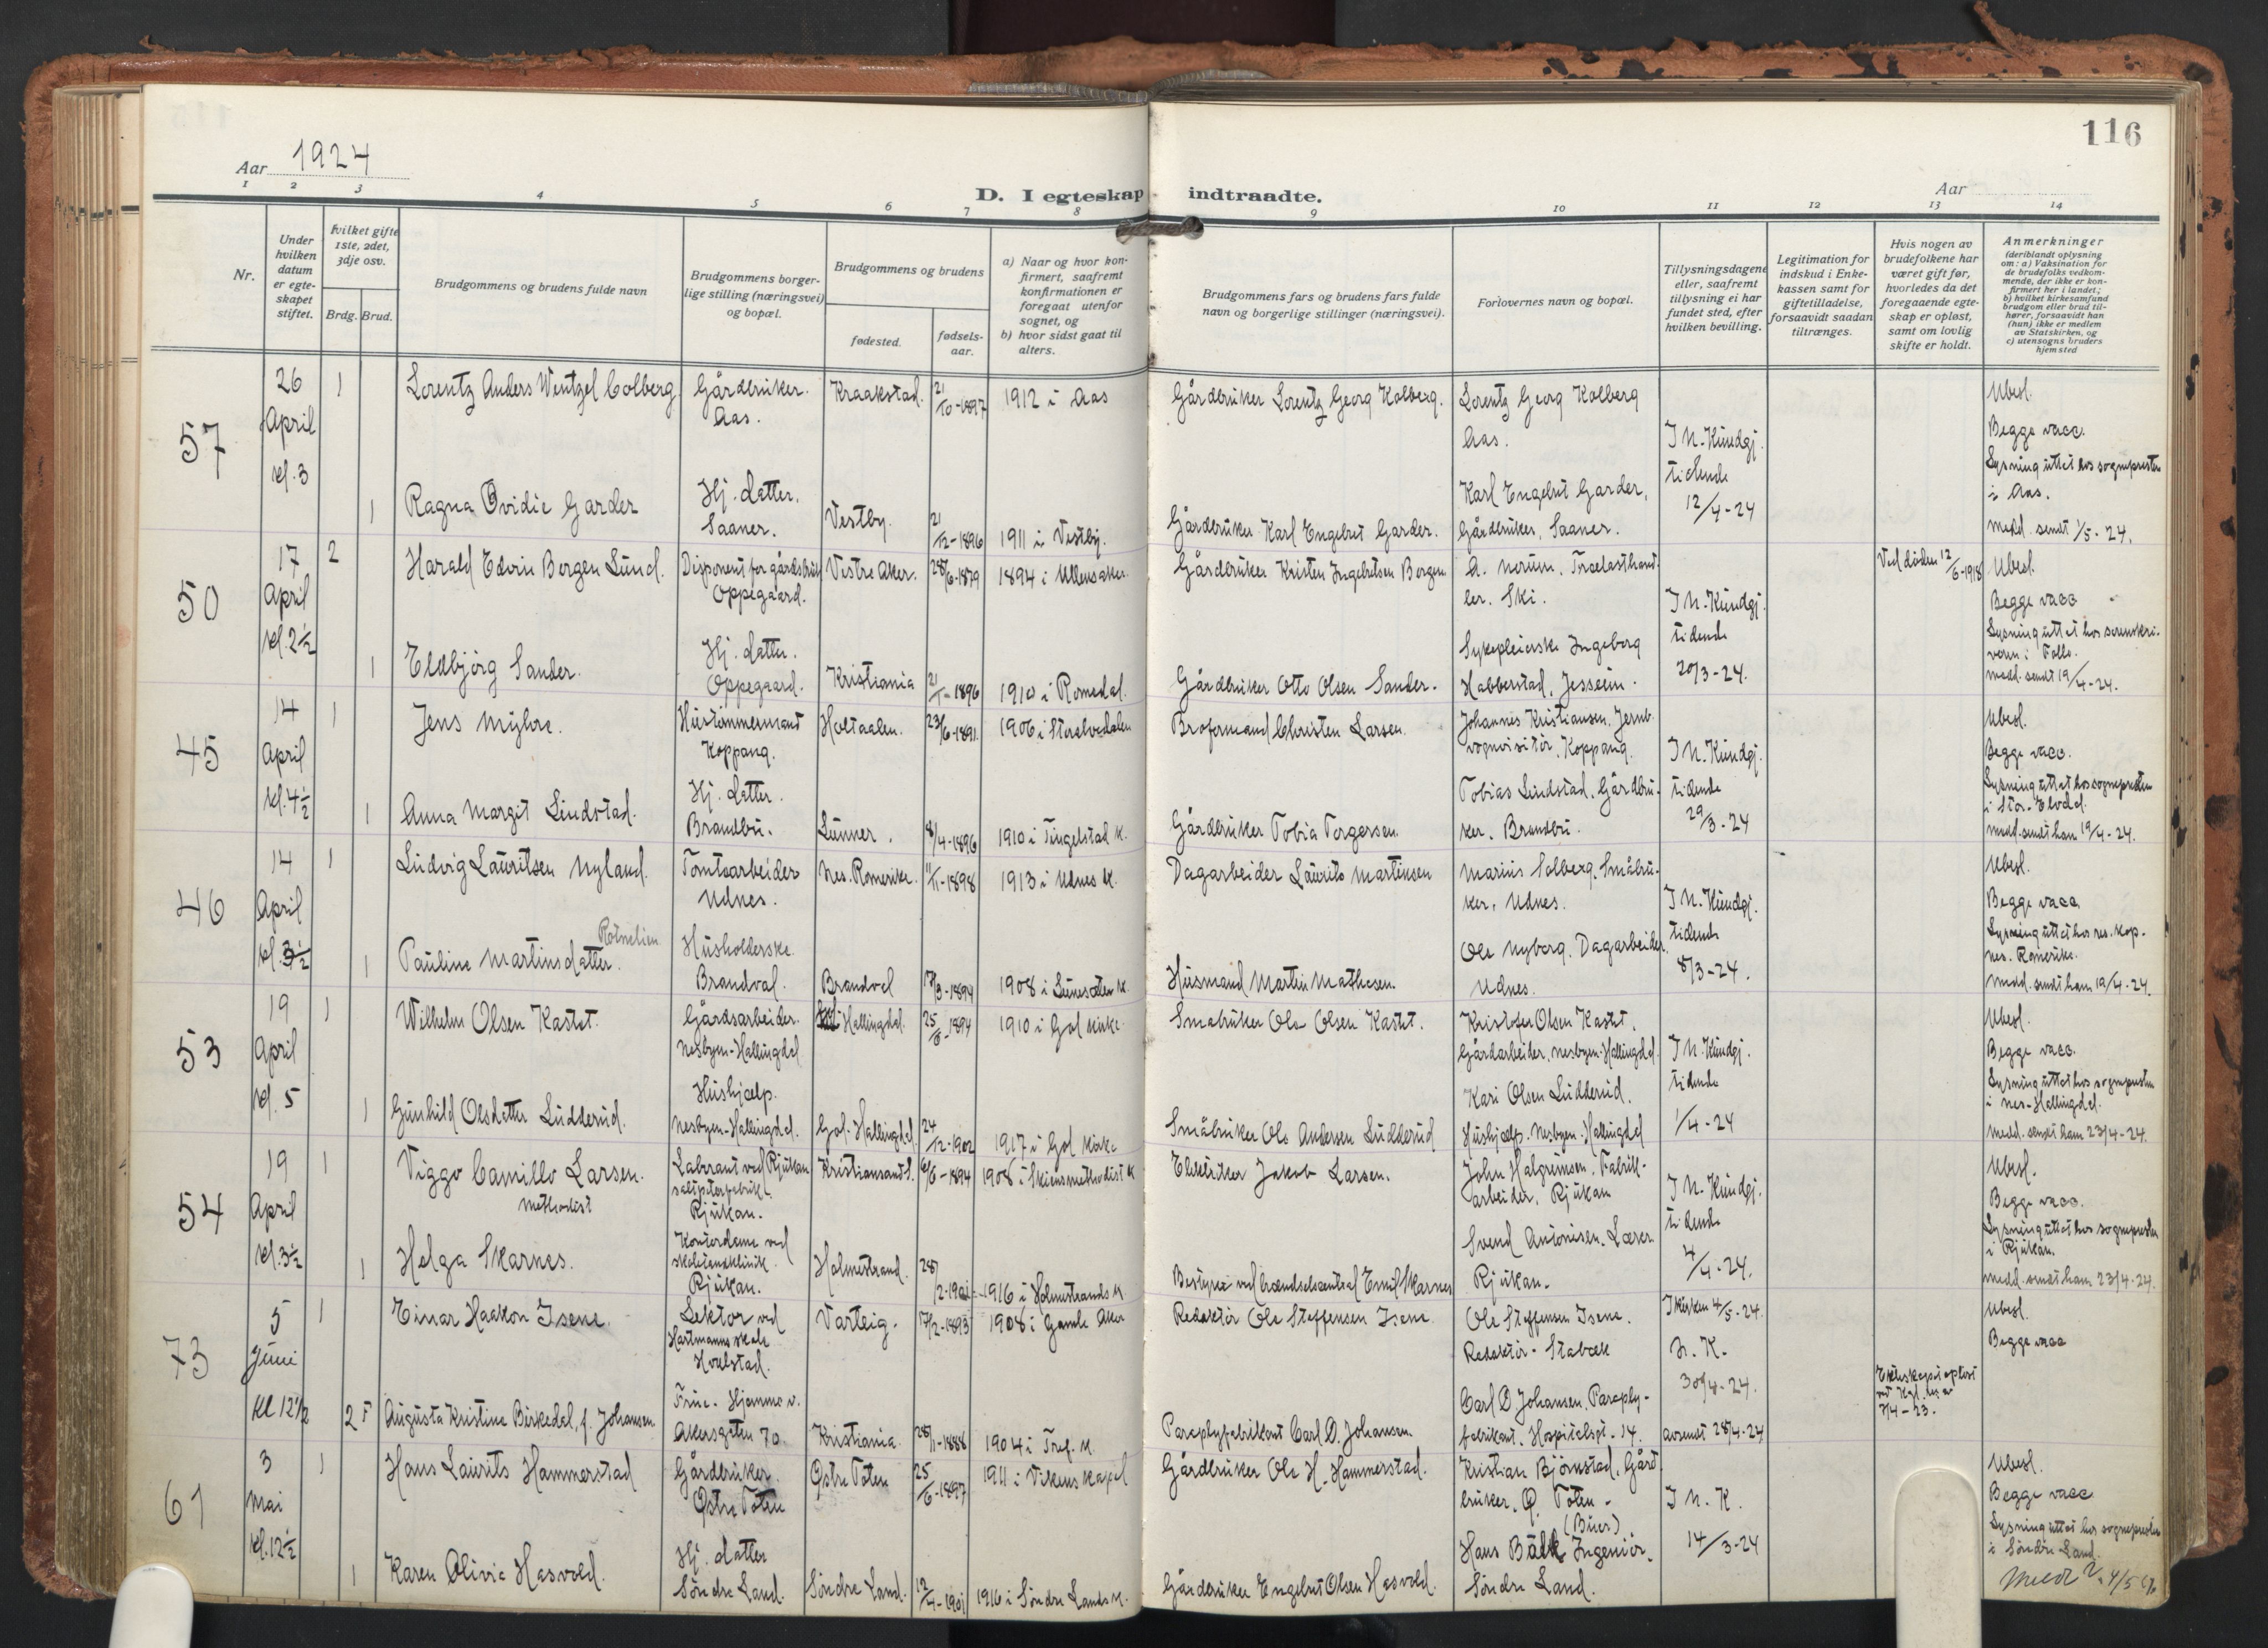 116
Aar 1924
Aar
D. I egteskap indtraadte.
1 2 3 4 5 6 7 8 9 10 11 12 13 14
Nr.
Under hvilken datum er egteskapet stiftet.
Hvilket gifte 1ste, 2det, 3dje osv.
Brdg. Brud.
Brudgommens og brudens fulde navn
Brudgommens borgerlige stilling (næringsvei) og bopæl.
Brudgommens og brudens
fødested. fødselsaar.
a) Naar og hvor konfirmert, saafremt konfirmationen er foregaat utenfor sognet, og
b) hvor sidst gaat til alters.
Brudgommens fars og brudens fars fulde navn og borgerlige stillinger (næringsvei).
Forlovernes navn og bopæl.
Tillysningsdagene eller, saafremt tillysning ei har fundet sted, efter hvilken bevilling.
Legitimation for indskud i Enkekassen samt for giftetilladelse, forsaavidt saadan tiltrænges.
Hvis nogen av brudefolkene har været gift før, hvorledes da det foregaaende egteskap er opløst, samt om lovlig skifte er holdt.
Anmerkninger (deriblandt oplysning om: a) Vaksination for de brudefolks vedkommende, der ikke er konfirmert her i landet; b) hvilket kirkesamfund brudgom eller brud tilhører, forsaavidt han (hun) ikke er medlem av Statskirken, og c) utensogns bruders hjemsted
57
26 April kl. 3
1 Lorentz Anders Wentzel Colberg. Gårdbruker. Aas. Kraakstad. 21/10-1897 1912 i Aas
Gårdbruker Lorentz Georg Kolberg. Lorentz Georg Kolberg Aas.
1 Ragna Ovidie Garder Hj. datter. Saaner. Vestby. 21/12-1896 1911 i Vestby.
Gårdbruker Karl Engebret Garder. Karl Engebret Garder, Gårdbruker, Saaner.
I N. Kundgj. tidende 12/4-24
Ubesl. Begge vacc. Lysning uttat hos sognepresten i Aas. Medd. sendt 1/5-24.
50
17 April kl. 2 1/2
2 Harald Edvin Borgen Lund. Disponent for gårdsbruk Oppegaard. Vestre Aker. 28/6-1879 1894 i Ullensaker.
Gårdbruker Kristen Ingebretsen Borgen A. Norum. Trælasthandler. Ski.
1 Eldbjörg Sander. Hj. datter. Oppegaard. Kristiania 21/1-1896 1910 i Romedal.
Gårdbruker Otto Olsen Sander. Sykepleierske Ingeborg Habberstad, Jessein.
I N. Kundgj. tidende 20/3-24.
Ved döden 12/6-1918
Ubesl. Begge vacc Lysning uttat hos sorenskriveren i Follo. Medd. sendt 19/4-24.
45
14 April kl. 4 1/2
1 Jens Myhre. Hustömmermand Koppang. Holtaalen. 23/6-1891. 1906 i Storelvedalen
Broformand Christen Larsen. Johannes Kristiansen. Jernb. vognvisitör. Koppang.
1 Anna Margit Lindstad. Hj. datter. Brandbu. Lunner. 8/4-1896 1910 i Tingelstad K.
Gårdbruker Tobia Torgersen. Tobias Lindstad. Gårdbruker. Brandbu.
I N. Kundgj. tidende 29/3-24
Ubesl. Begge vacc. Lysning uttat hos sognepresten i Stor-Elvdal. medd. sendt ham 19/4-24.
46
14 April kl. 3 1/2
1 Ludvig Lauritsen Nyland. Tomtearbeider Udnes. Nes. Romerike. 11/11-1898 1913 i Udnes K.
Dagarbeider Laurits Martinsen Marius Solberg. Småbruker. Udnes.
Rotnelien
1 Pauline Martinsdatter. Husholderske. Brandval. Brandval 17/3-1894 1908 i Lunesæter K.
Husmand Martin Mathesen. Ole Nyberg. Dagarbeider. Udnes.
I N. Kundgj. tidende 8/3-24.
Ubesl. Begge vacc. Lysning uttat hos res. kap. Nes. Romerike. medd. sendt ham 19/4-24.
53
19 April kl. 5
1 Wilhelm Olsen Kastet. Gårdsarbeider. Nesbyen-Hallingdal Hallingdal. 25/8-1894 1910 i Gol Kirke.
Småbruker Ole Olsen Kastet. Kristofer Olsen Kastet, Gårdarbeider, Nesbyen. Hallingdal.
1 Gunhild Olsdatter Ludderud. Hushjælp. Nesbyen-Hallingdal. Gol. Hallingdal. 24/12-1902 1917 i Gol Kirke
Småbruker Ole Andersen Ludderud Kari Olsen Ludderud. Hushjælp. Nesbyen. Hallingdal
I N. Kundgj. tidende 1/4-24
Ubesl. Begge vacc. Lysning uttat hos sognepresten i Nes-Hallingdal. medd. sendt ham 23/4-24.
54
19 April kl. 3 1/2
1 Viggo Camillo Larsen. Methodist Laborant ved Rjukan salpeterfabrik. Rjukan. Kristiansand S. 6/6-1894 1908 i Skiens methodist K
Elektriker Jakob Larsen. John Halgrimsen. Fabrikarbeider. Rjukan
1 Helga Skarnes. Kontordame ved skoletandklinik. Rjukan. Holmestrand. 28/2-1901 1916 i Holmestrands K
Bestyrer ved brændselcentral Emil Skarnes Svend Antonisen. Lærer. Rjukan.
I N. Kundgj. tidende 4/4-24.
Ubesl. Begge vacc. Lysning uttat hos sognepresten i Rjukan. medd. sendt ham 23/4-24.
73
5 Juni Kl 12 1/2
1 Einar Haakon Isene. Lektor ved Hartmanns skole Hvalstad. Varteig. 17/2-1893 1908 i Gamle Aker
Redaktör Ole Steffensen Isene Ole Steffensen Isene. Redaktör. Stabæk
2 F Augusta Kristine Birkedal, f. Johansen. Frue. Hjemme v. Akersgaten 70. Kristiania. 28/11-1888 1904 i Tref. K.
Paraplyfabrikant Carl O. Johansen. Carl O. Johansen. Paraplyfabrikant. Hospitalsgt. 14.
I Kirken 4/5-24. N. K. 30/4-24. avsendt 28/4-24
Ubesl. Begge vacc
61
3 Mai kl. 12 1/2
1 Hans Laurits Hammerstad Gårdbruker. Østre Toten Østre Toten 25/6-1897 1911 i Vikens kapel
Gårdbruker Ole H. Hammerstad. Kristian Björnstad. Gårdbruker. Ø. Toten.
1 Karen Olivia Hasvold. Hj. datter Söndre Land. Söndre Land. 12/4-1901 1916 i Söndre Lands K.
Gårdbruker Engebret Olsen Hasvold. Hans Ingeniör. Söndre Land.
I N. K. 14/3-24
Ubesl. Begge vacc Lysning uttat hos sognepresten i Söndre Land.